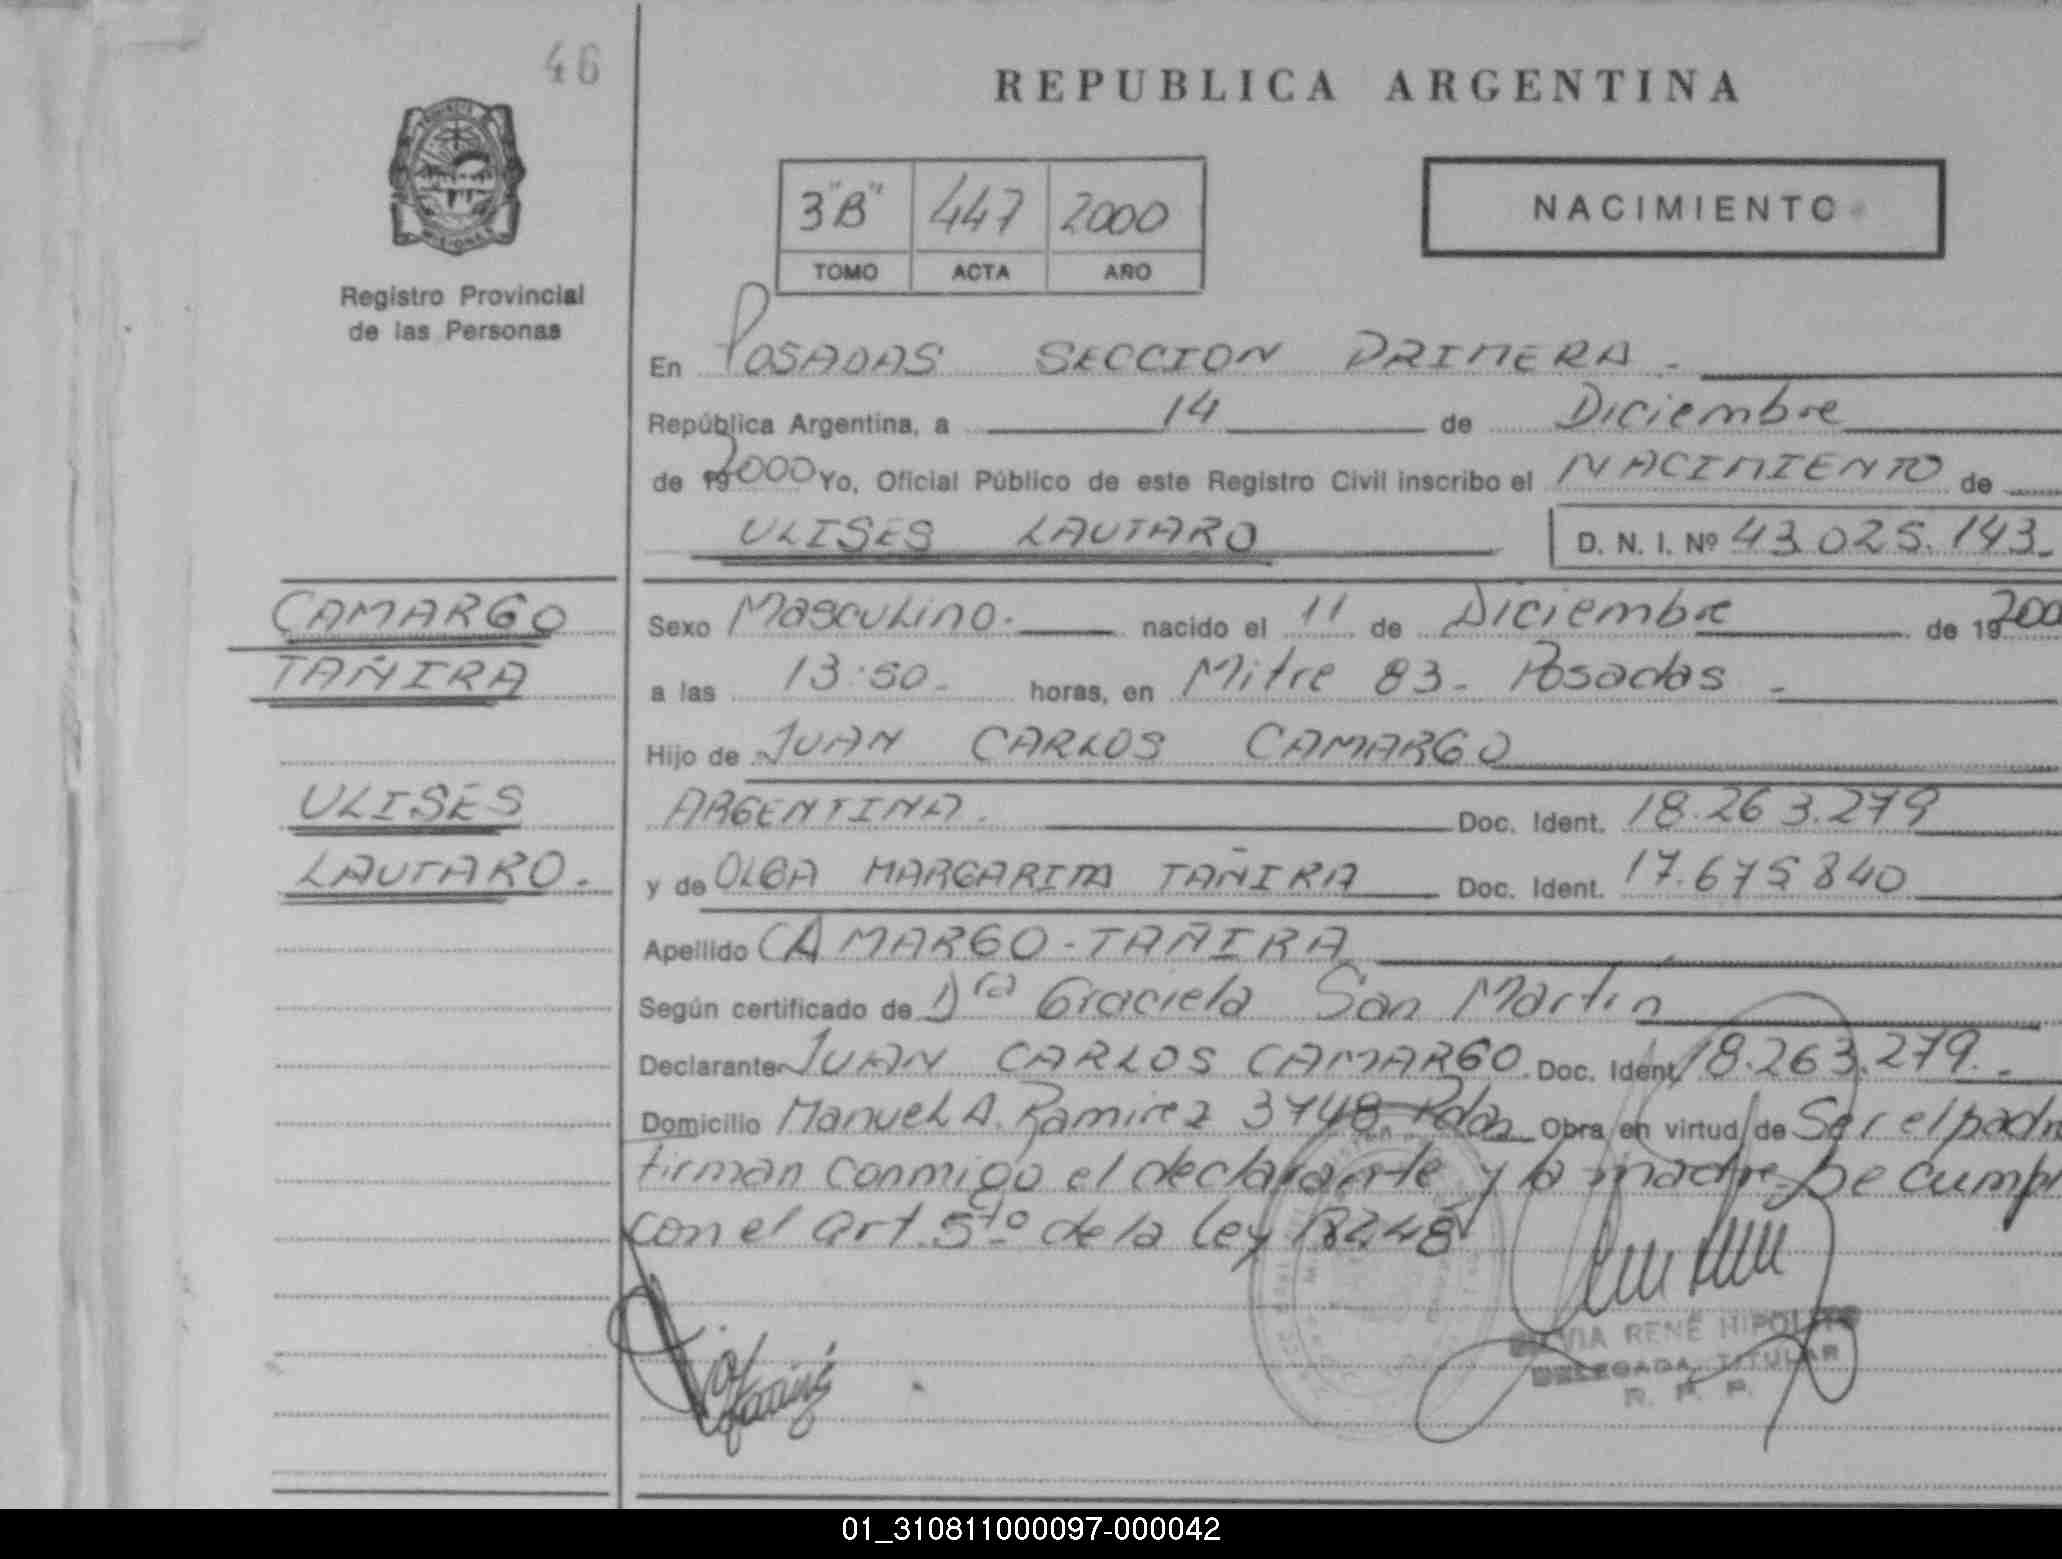 46
REPUBLICA ARGENTINA
3"B" 447 2000
TOMO ACTA AÑO
NACIMIENTO
Registro Provincial
de las Personas
En POSADAS SECCION PRIMERA.
República Argentina, a 14 de Diciembre
de 19 2000 Yo, Oficial Público de este Registro Civil inscribo el NACIMIENTO de
ULISES LAUTARO D. N. I. Nº 43.025.143.
CAMARGO
TAÑIRA
ULISES
LAUTARO.
Sexo Masculino. nacido el 11 de Diciembre de 19 200
a las 13:50. horas, en Mitre 83. Posadas
Hijo de JUAN CARLOS CAMARGO
ARGENTINA. Doc. Ident. 18.263.279
y de OLGA MARGARITA TAÑIRA Doc. Ident. 17.675840
Apellido CAMARGO-TAÑIRA
Según certificado de Dra Graciela San Martin
Declarante JUAN CARLOS CAMARGO. Doc. Ident. 18.263.279.
Domicilio Manuel A. Ramirez 3748 Pdas Obra en virtud de Ser el padr
firman conmigo el declarante y la madre. Se cumpl
con el art. 5to de la Ley 18248
RENÉ HIPOLITO
DELEGADA TITULAR
R. P. P.
01_310811000097-000042